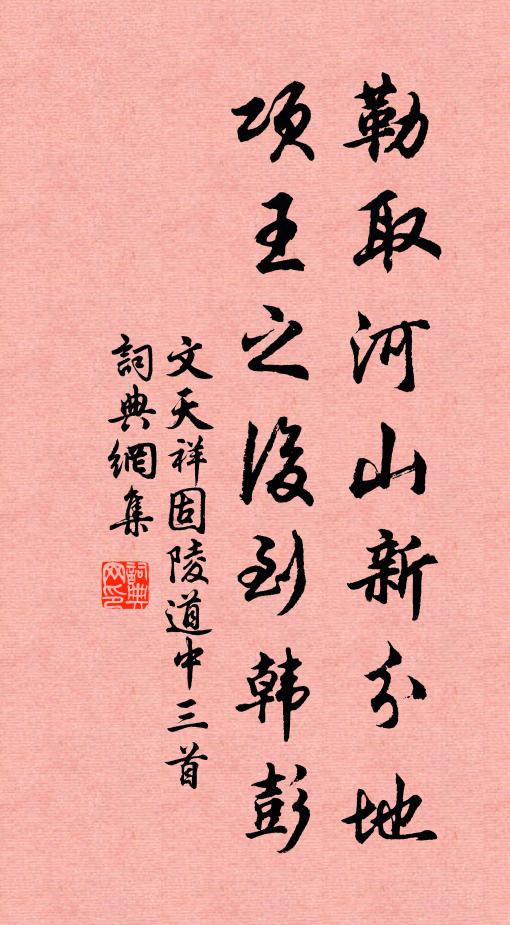 勒取河山新分地
項王之後到韓彭
文天祥固陵道中三首
詞典網集
詞典網印